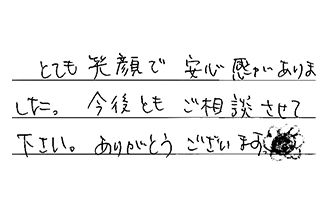 とても笑顔で 安心感がありま
した。今後とも ご相談させて
下さい。ありがとう ございます。